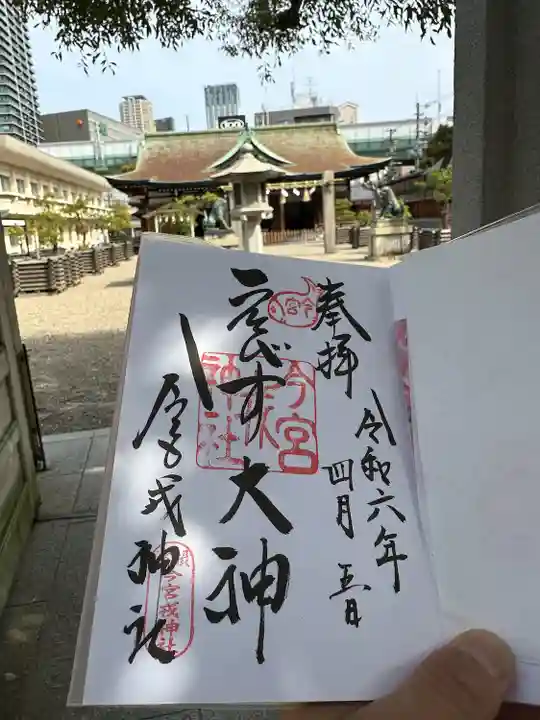 奉拝
令和六年
四月五日
今宮
ゑびす大神
今宮戎神社
今宮戎神社